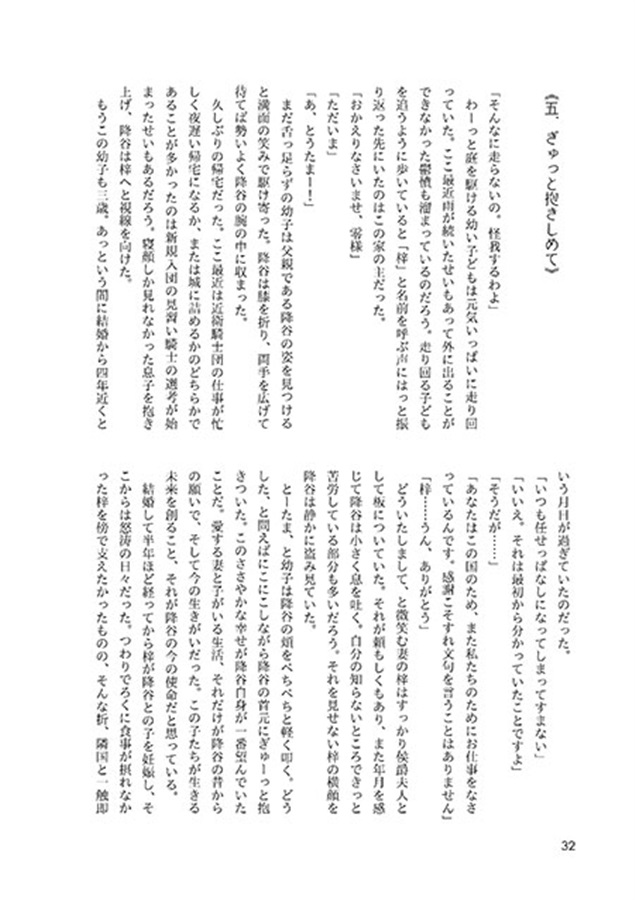 《五．ぎゅっと抱きしめて》
「そんなに走らないの。怪我するわよ」
わーっと庭を駆ける幼い子どもは元気いっぱいに走り回
っていた。ここ最近雨が続いたせいもあって外に出ることが
できなかった鬱憤も溜まっているのだろう。走り回る子ども
を追うように歩いていると「梓」と名前を呼ぶ声にはっと振
り返った先にいたのはこの家の主だった。
「おかえりなさいませ、零様」
「ただいま」
「あ、とうたまー！」
まだ舌っ足らずの幼子は父親である降谷の姿を見つける
と満面の笑みで駆け寄った。降谷は膝を折り、両手を広げて
待てば勢いよく降谷の腕の中に収まった。
久しぶりの帰宅だった。ここ最近は近衛騎士団の仕事が忙
しく夜遅い帰宅になるか、または城に詰めるかのどちらかで
あることが多かったのは新規入団の見習い騎士の選考が始
まったせいもあるだろう。寝顔しか見れなかった息子を抱き
上げ、降谷は梓へと視線を向けた。
もうこの幼子も三歳。あっという間に結婚から四年近くと
いう月日が過ぎていたのだった。
「いつも任せっぱなしになってしまってすまない」
「いいえ。それは最初から分かっていたことですよ」
「そうだが……」
「あなたはこの国のため、また私たちのためにお仕事をなさ
っているんです。感謝こそすれ文句を言うことはありません」
「梓……うん、ありがとう」
どういたしまして、と微笑む妻の梓はすっかり侯爵夫人と
して板についていた。それが頼もしくもあり、また年月を感
じて降谷は小さく息を吐く。自分の知らないところできっと
苦労している部分も多いだろう。それを見せない梓の横顔を
降谷は静かに盗み見ていた。
とーたま、と幼子は降谷の頬をぺちぺちと軽く叩く。どう
した、と問えばにこにこしながら降谷の首元にぎゅーっと抱
きついた。このささやかな幸せが降谷自身が一番望んでいた
ことだ。愛する妻と子がいる生活、それだけが降谷の昔から
の願いで、そして今の生きがいだった。この子たちが生きる
未来を創ること、それが降谷の今の使命だと思っている。
結婚して半年ほど経ってから梓が降谷との子を妊娠し、そ
こからは怒涛の日々だった。つわりでろくに食事が摂れなか
った梓を傍で支えたかったものの、そんな折、隣国と一触即
32